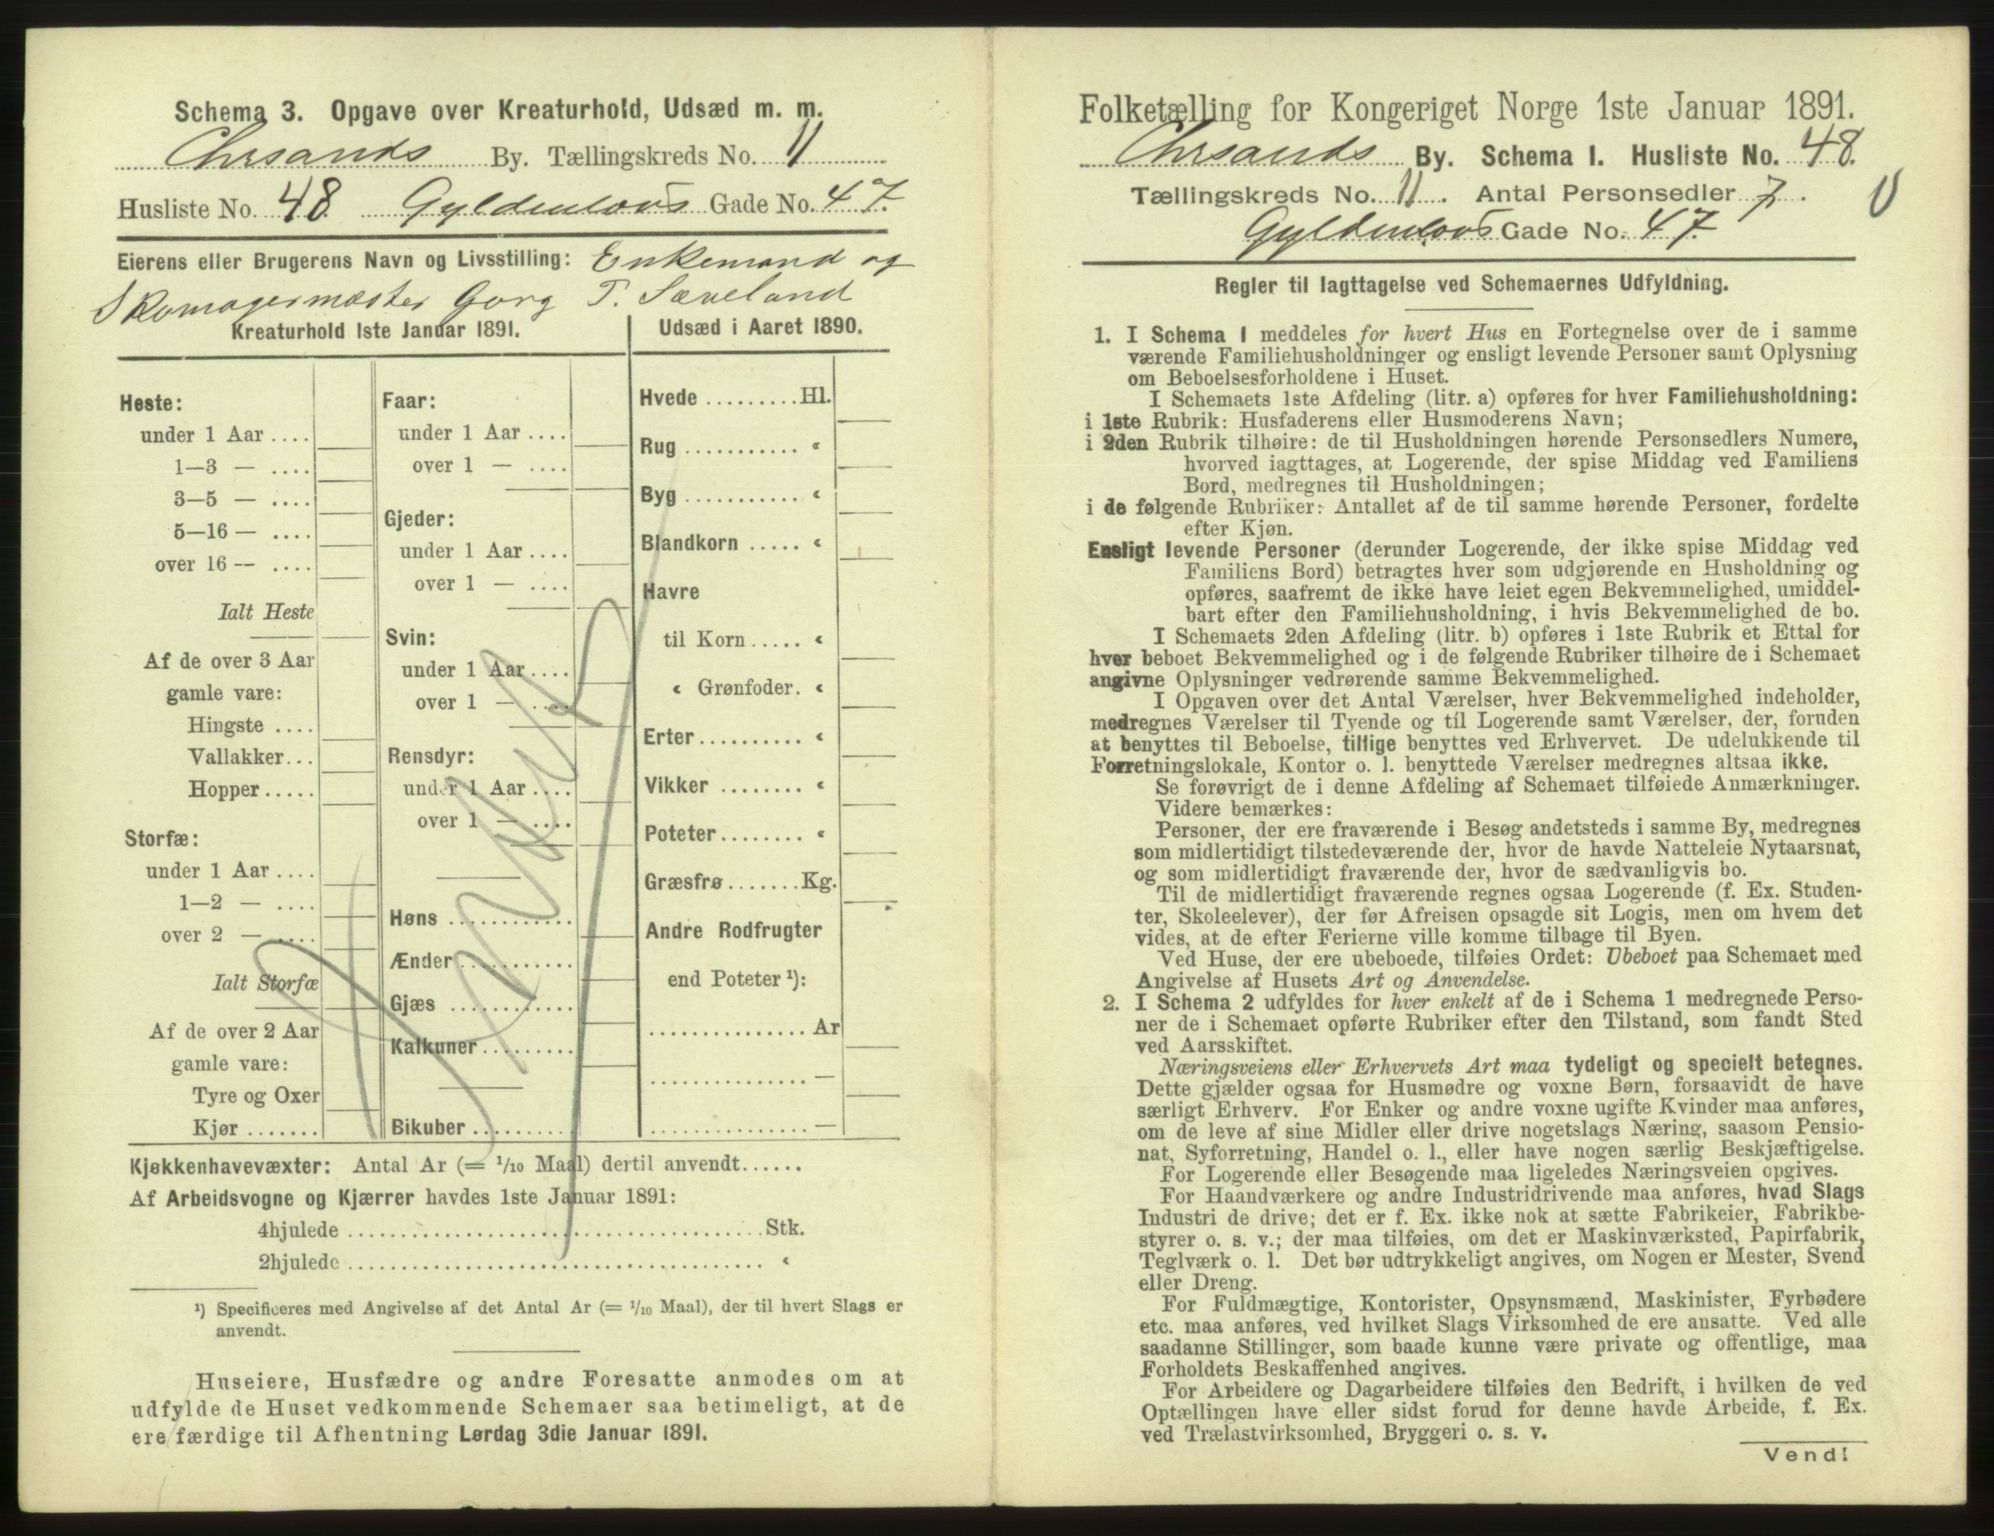 Schema 3. Opgave over Kreaturhold, Udsæd m. m.
Chrsands By. Tællingskreds No. 11
Husliste No. 48. Gyldenløvs Gade No. 47.
Eierens eller Brugerens Navn og Livsstilling: Enkemand og
Skomagermester Gorg T. Sæveland
Kreaturhold 1ste Januar 1891.
Heste:
under 1 Aar ....
1—3 — ....
3—5 — ....
5—16 — ....
over 16 — ....
Ialt Heste
Af de over 3 Aar
gamle vare:
Hingste ....
Vallakker...
Hopper.....
Storfæ:
under 1 Aar ....
1—2 — ....
over 2 — ....
Ialt Storfæ
Af de over 2 Aar
gamle vare:
Tyre og Oxer
Kjør .......
Faar:
under 1 Aar ....
over 1 — ....
Gjeder:
under 1 Aar ....
over 1 — ....
Svin:
under 1 Aar ....
over 1 — ....
Rensdyr:
under 1 Aar ....
over 1 — ....
Høns ...........
Ænder ..........
Gjæs ...........
Kalkuner ........
Bikuber .........
Udsæd i Aaret 1890.
Hvede .........Hl.
Rug ........... «
Byg ........... «
Blandkorn ..... «
Havre
til Korn ..... «
« Grønfoder. «
Erter.......... «
Vikker ........ «
Poteter........ «
Græsfrø .......Kg.
Andre Rodfrugter
end Poteter ¹):
............... Ar
............... —
............... —
Kjøkkenhavevæxter: Antal Ar (= 1/10 Maal) dertil anvendt......
Af Arbeidsvogne og Kjærrer havdes 1ste Januar 1891:
4hjulede ........................................Stk.
2hjulede ........................................ «
¹) Specificeres med Angivelse af det Antal Ar (= 1/10 Maal), der til hvert Slags er
anvendt.
Huseiere, Husfædre og andre Foresatte anmodes om at
udfylde de Huset vedkommende Schemaer saa betimeligt, at de
ere færdige til Afhentning Lørdag 3die Januar 1891.
Folketælling for Kongeriget Norge 1ste Januar 1891.
Chrsands By. Schema 1. Husliste No. 48.
Tællingskreds No. 11. Antal Personsedler 7.
Gyldenløvs Gade No. 47.
Regler til Iagttagelse ved Schemaernes Udfyldning.
1. I Schema 1 meddeles for hvert Hus en Fortegnelse over de i samme
værende Familiehusholdninger og ensligt levende Personer samt Oplysning
om Beboelsesforholdene i Huset.
I Schemaets 1ste Afdeling (litr. a) opføres for hver Familiehusholdning:
i 1ste Rubrik: Husfaderens eller Husmoderens Navn;
i 2den Rubrik tilhøire: de til Husholdningen hørende Personsedlers Numere,
hvorved iagttages, at Logerende, der spise Middag ved Familiens
Bord, medregnes til Husholdningen;
i de følgende Rubriker: Antallet af de til samme hørende Personer, fordelte
efter Kjøn.
Ensligt levende Personer (derunder Logerende, der ikke spise Middag ved
Familiens Bord) betragtes hver som udgjørende en Husholdning og
opføres, saafremt de ikke have leiet egen Bekvemmelighed, umiddel-
bart efter den Familiehusholdning, i hvis Bekvemmelighed de bo.
I Schemaets 2den Afdeling (litr. b) opføres i 1ste Rubrik et Ettal for
hver beboet Bekvemmelighed og i de følgende Rubriker tilhøire de i Schemaet
angivne Oplysninger vedrørende samme Bekvemmelighed.
I Opgaven over det Antal Værelser, hver Bekvemmelighed indeholder,
medregnes Værelser til Tyende og til Logerende samt Værelser, der, foruden
at benyttes til Beboelse, tillige benyttes ved Erhvervet. De udelukkende til
Forretningslokale, Kontor o. l. benyttede Værelser medregnes altsaa ikke.
Se forøvrigt de i denne Afdeling af Schemaet tilføiede Anmærkninger.
Videre bemærkes:
Personer, der ere fraværende i Besøg andetsteds i samme By, medregnes
som midlertidigt tilstedeværende der, hvor de havde Natteleie Nytaarsnat,
og som midlertidigt fraværende der, hvor de sædvanligvis bo.
Til de midlertidigt fraværende regnes ogsaa Logerende (f. Ex. Studen-
ter, Skoleelever), der før Afreisen opsagde sit Logis, men om hvem det
vides, at de efter Ferierne ville komme tilbage til Byen.
Ved Huse, der ere ubeboede, tilføies Ordet: Ubeboet paa Schemaet med
Angivelse af Husets Art og Anvendelse.
2. I Schema 2 udfyldes for hver enkelt af de i Schema 1 medregnede Perso-
ner de i Schemaet opførte Rubriker efter den Tilstand, som fandt Sted
ved Aarsskiftet.
Næringsveiens eller Erhvervets Art maa tydeligt og specielt betegnes.
Dette gjælder ogsaa for Husmødre og voxne Børn, forsaavidt de have
særligt Erhverv. For Enker og andre voxne ugifte Kvinder maa anføres,
om de leve af sine Midler eller drive nogetslags Næring, saasom Pensio-
nat, Syforretning, Handel o. l., eller have nogen særlig Beskjæftigelse.
For Logerende eller Besøgende maa ligeledes Næringsveien opgives.
For Haandværkere og andre Industridrivende maa anføres, hvad Slags
Industri de drive; det er f. Ex. ikke nok at sætte Fabrikeier, Fabrikbe-
styrer o. s. v.; der maa tilføies, om det er Maskinværksted, Papirfabrik,
Teglværk o. l. Det bør udtrykkeligt angives, om Nogen er Mester, Svend
eller Dreng.
For Fuldmægtige, Kontorister, Opsynsmænd, Maskinister, Fyrbødere
etc. maa anføres, ved hvilket Slags Virksomhed de ere ansatte. Ved alle
saadanne Stillinger, som baade kunne være private og offentlige, maa
Forholdets Beskaffenhed angives.
For Arbeidere og Dagarbeidere tilføies den Bedrift, i hvilken de ved
Optællingen have eller sidst forud for denne havde Arbeide, f. Ex.
ved Trælastvirksomhed, Bryggeri o. s. v.
Vend!